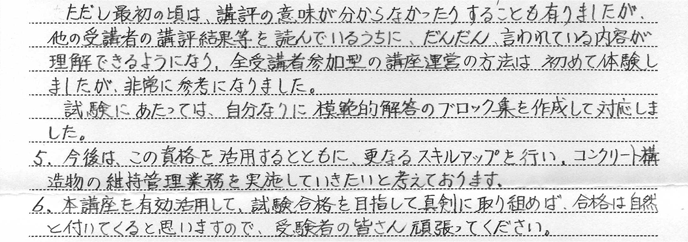 ただし最初の頃は、講評の意味が分からなかったりすることも有りましたが、
他の受講者の講評結果等を読んでいるうちに、だんだん言われている内容が
理解できるようになり、全受講者参加型の講座運営の方法は初めて体験し
ましたが、非常に参考になりました。
試験にあたっては、自分なりに模範的解答のブロック集を作成して対応しま
した。
5、今後は、この資格を活用するとともに、更なるスキルアップを行い、コンクリート構
造物の維持管理業務を実施していきたいと考えております。
6、本講座を有効活用して、試験合格を目指して真剣に取り組めば、合格は自然
と付いてくると思いますので、受験者の皆さん頑張ってください。